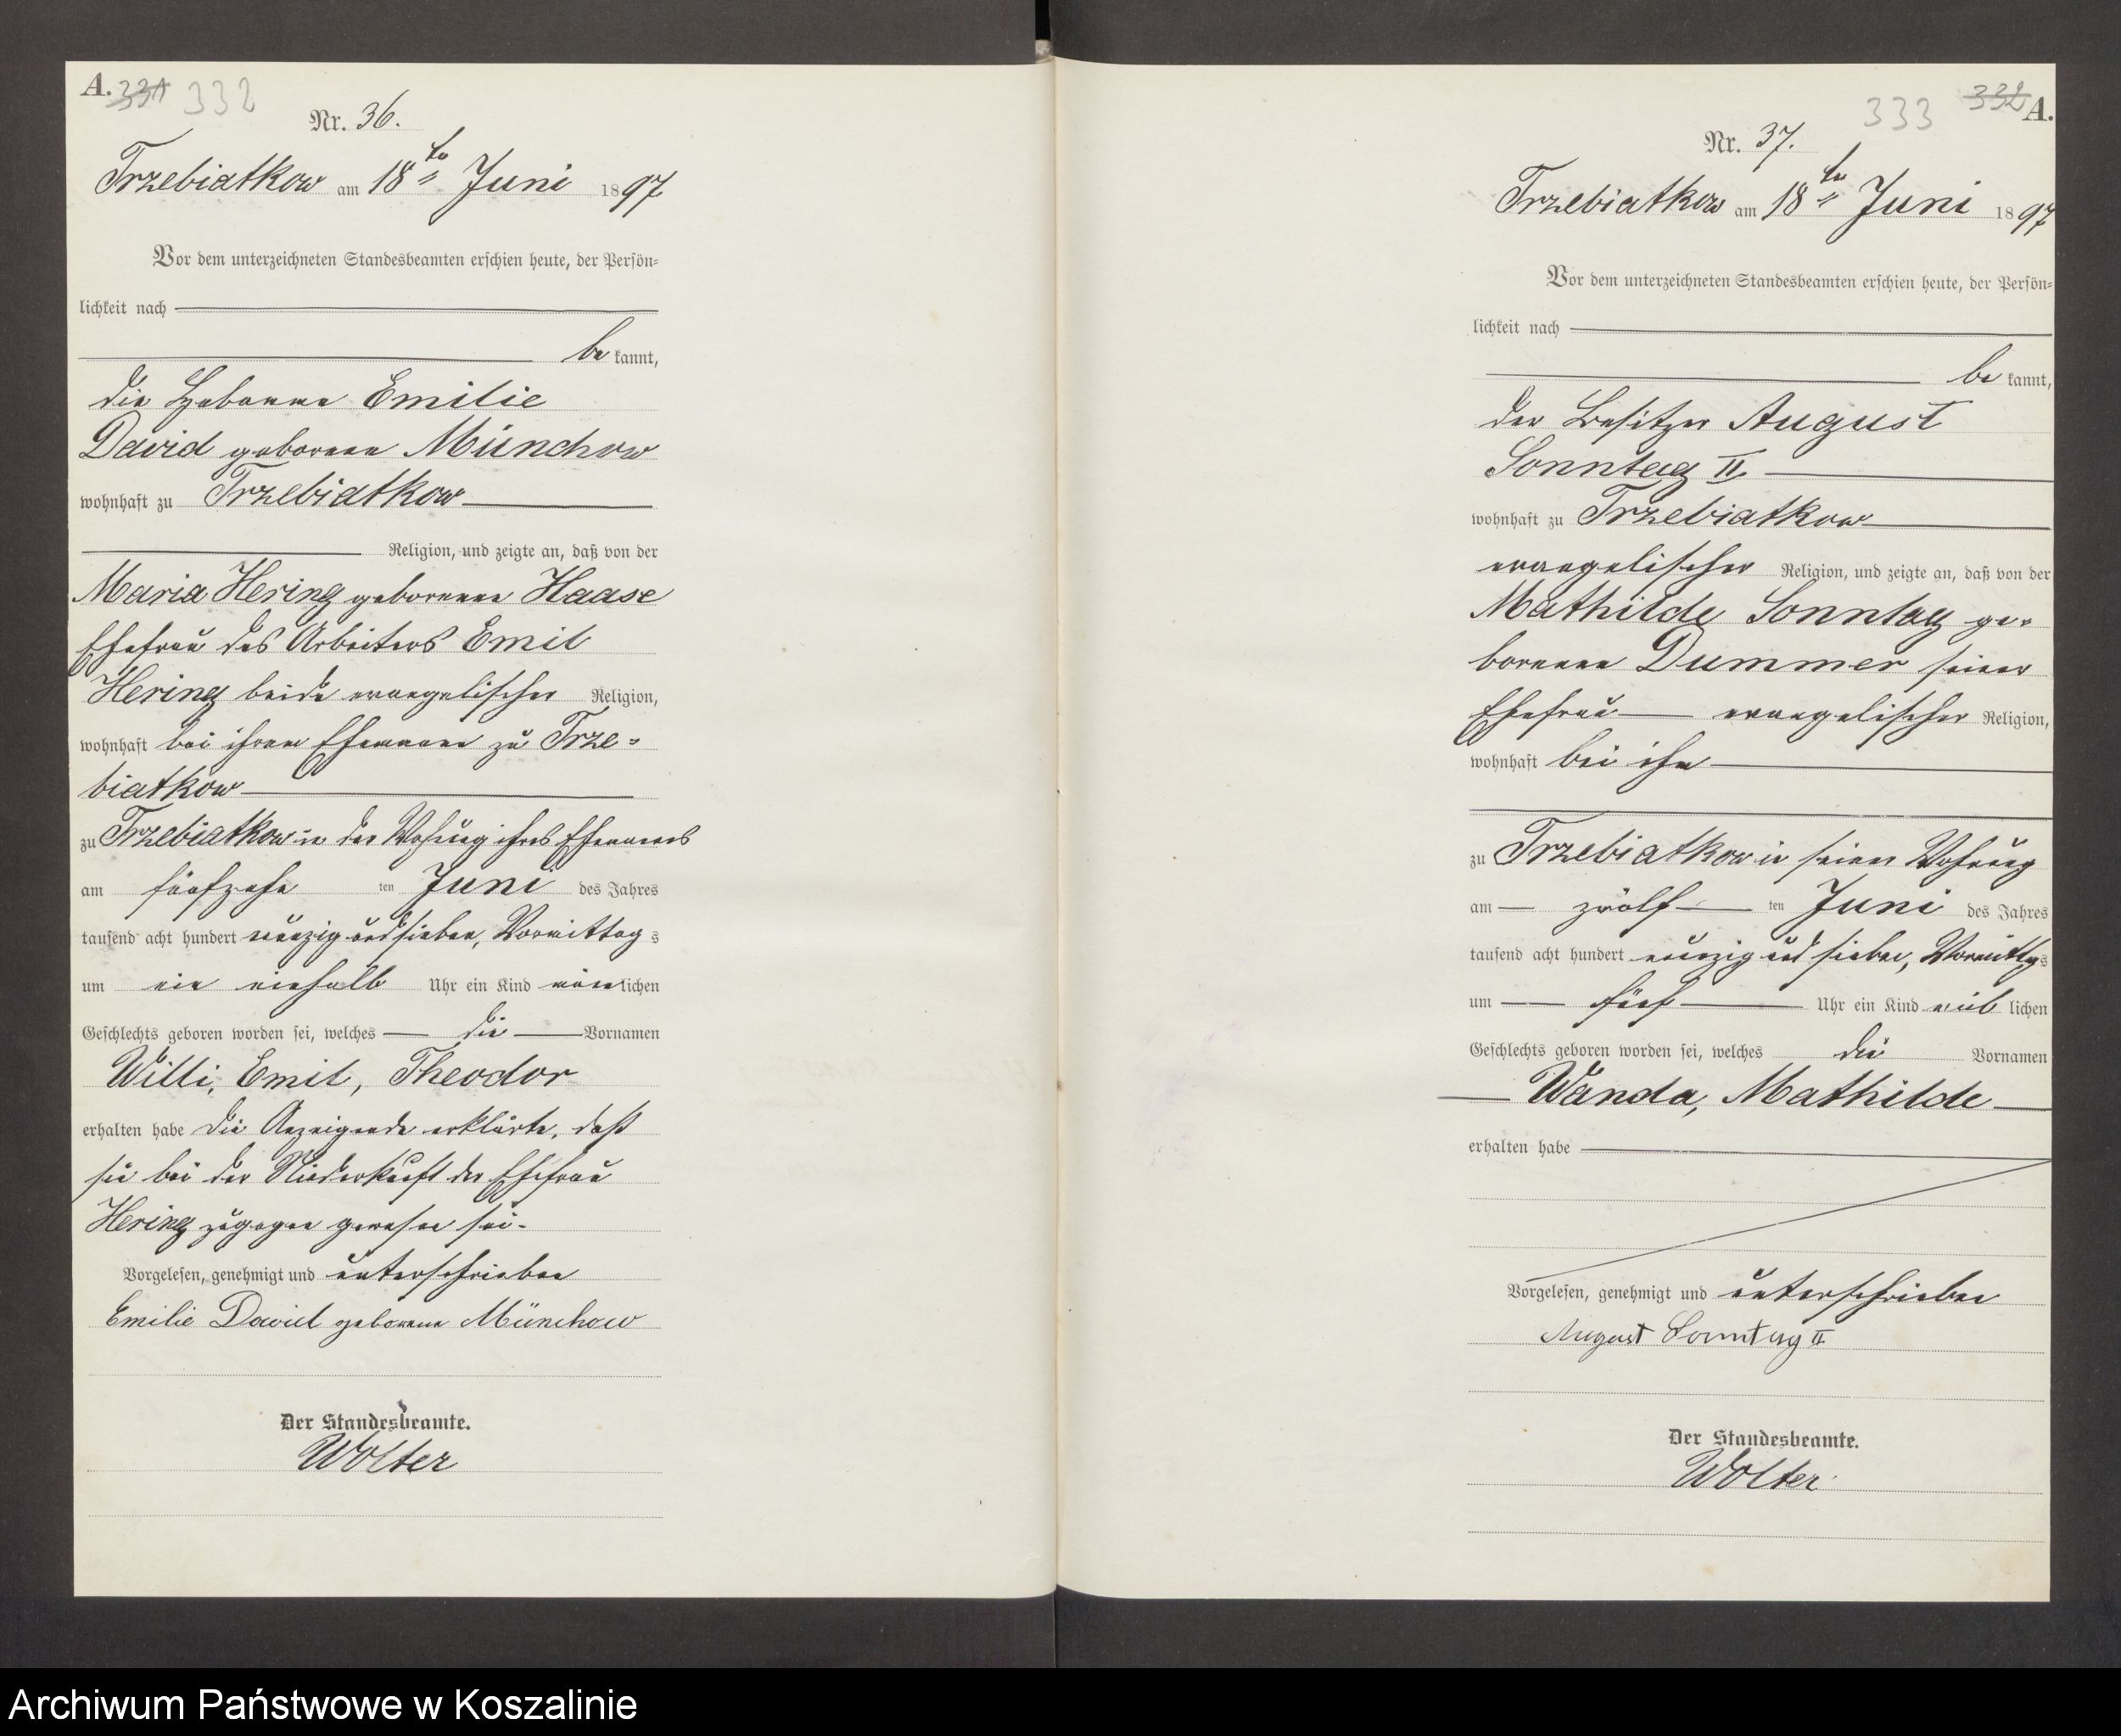 A. 331 332
Nr. 36.
Trzebiatkow am 18ten Juni 1897
Vor dem unterzeichneten Standesbeamten erschien heute, der Persön=
lichkeit nach
be kannt,
die Hebamme Emilie
David geborene Münchow
wohnhaft zu Trzebiatkow
Religion, und zeigte an, daß von der
Maria Hering geborenen Haase
Ehefrau des Arbeiters Emil
Hering beide evangelischer Religion,
wohnhaft bei ihrem Ehemanne zu Trze=
biatkow
zu Trzebiatkow in der Wohnung ihres Ehemannes
am fünfzehn ten Juni des Jahres
tausend acht hundert neunzig und sieben, Vormittag s
um ein einhalb Uhr ein Kind männlichen
Geschlechts geboren worden sei, welches die Vornamen
Willi, Emil, Theodor
erhalten habe Die Anzeigende erklärte, daß
sie bei der Niederkunft der Ehefrau
Hering zugegen gewesen sei.
Vorgelesen, genehmigt und unterschrieben
Emilie David geborene Münchow
Der Standesbeamte.
Wolter
333 332 A.
Nr. 37.
Trzebiatkow am 18ten Juni 1897
Vor dem unterzeichneten Standesbeamten erschien heute, der Persön=
lichkeit nach
be kannt,
der Besitzer August
Sonntag II.
wohnhaft zu Trzebiatkow
evangelischer Religion, und zeigte an, daß von der
Mathilde Sonntag ge=
borenen Dummer seiner
Ehefrau evangelischer Religion,
wohnhaft bei ihm
zu Trzebiatkow in seiner Wohnung
am zwölf ten Juni des Jahres
tausend acht hundert neunzig und sieben, Vormittags
um fünf Uhr ein Kind weib lichen
Geschlechts geboren worden sei, welches die Vornamen
Wanda, Mathilde
erhalten habe
Vorgelesen, genehmigt und unterschrieben
August Sonntag II
Der Standesbeamte.
Wolter
Archiwum Państwowe w Koszalinie